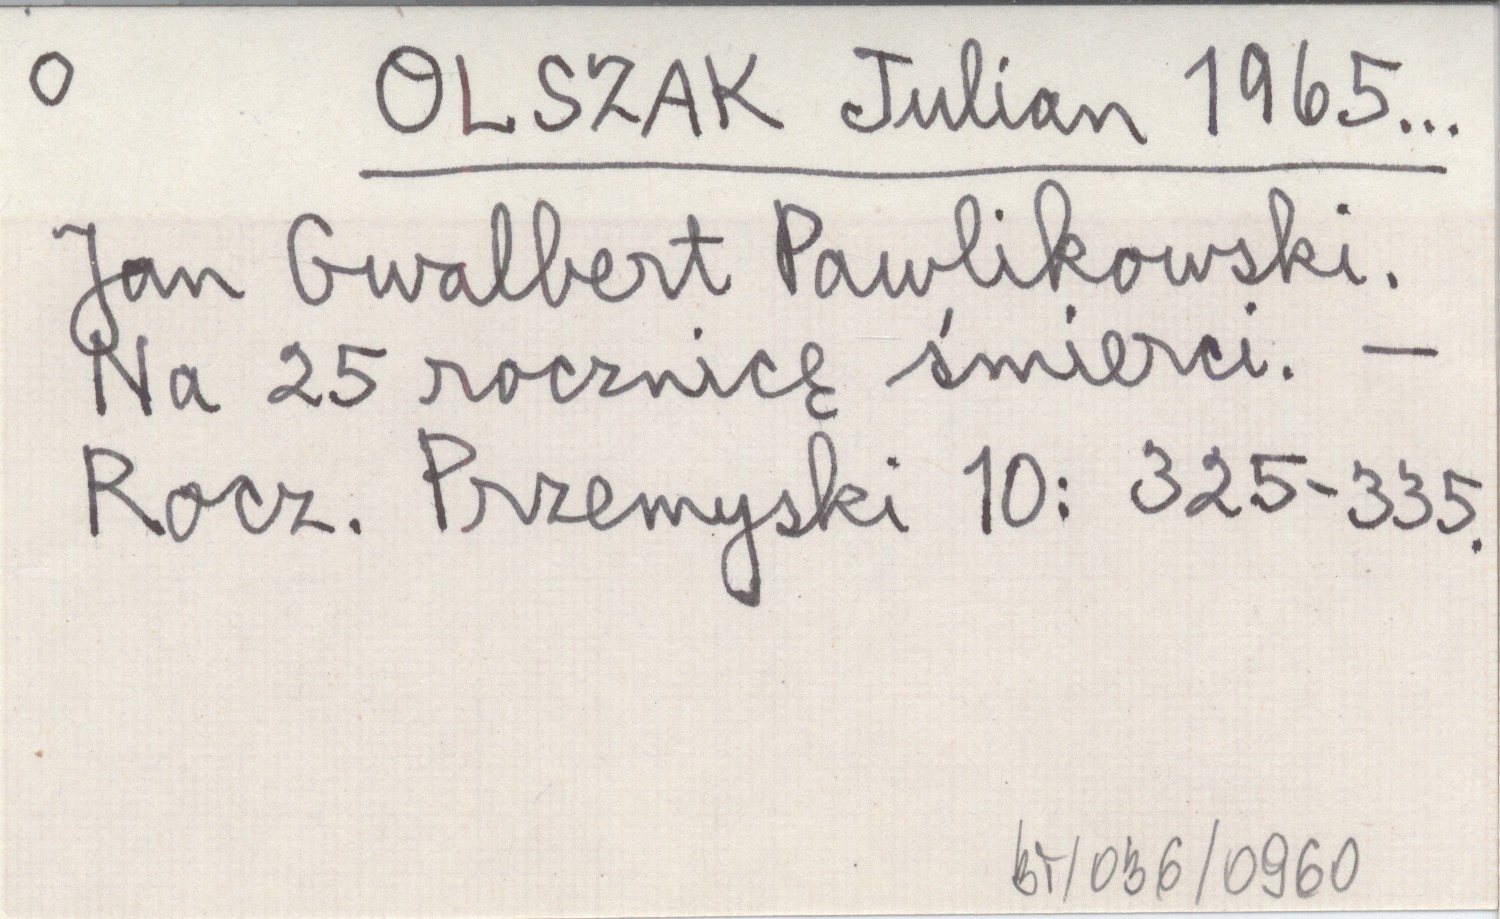 O OLSZAK Julian 1965...
Jan Gwalbert Pawlikowski.
Na 25 rocznicę śmierci. —
Rocz. Przemyski 10: 325-335.
/036/0960